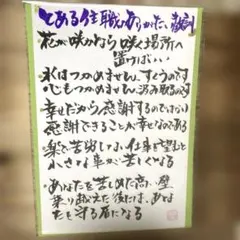 とある住職のありがたい教訓
花が咲かないなら咲く場所へ
置けばいい
水はつかめません、すくうのです
心もつかめません汲み取るのです
幸せだから感謝するのではない
感謝できることが幸せなのである
楽で苦労しない仕事を望むと
小さな事が苦しくなる
あなたを苦しめた高い壁
乗り越えた後には、あな
たを守る盾になる